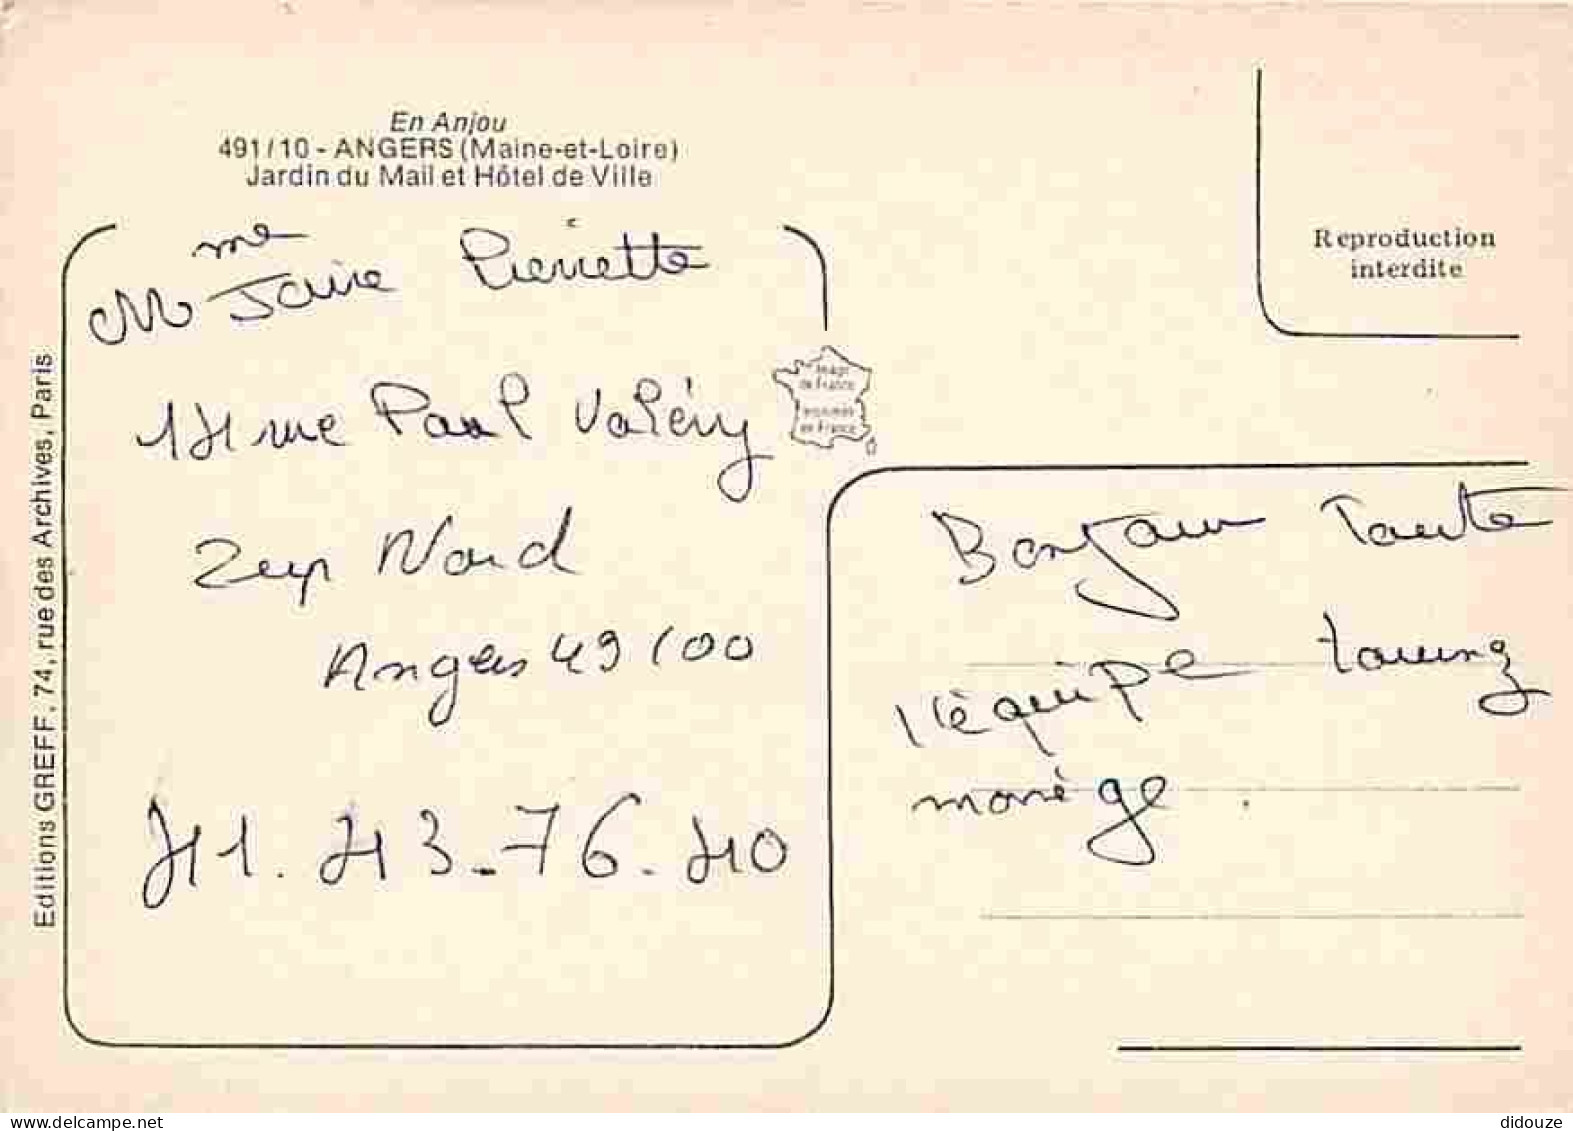 En Anjou
491/10 - ANGERS (Maine-et-Loire)
Jardin du Mail et Hôtel de Ville
Reproduction
interdite
Editions GREFF, 74, rue des Archives, Paris
Image
de France
Imprimée
en France
Pierrette
14 rue Paul Valéry
Zup Nord
Angers 49100
41.43-76.40
Bonjour Tante
l'équipe
delcampe.net
didouze